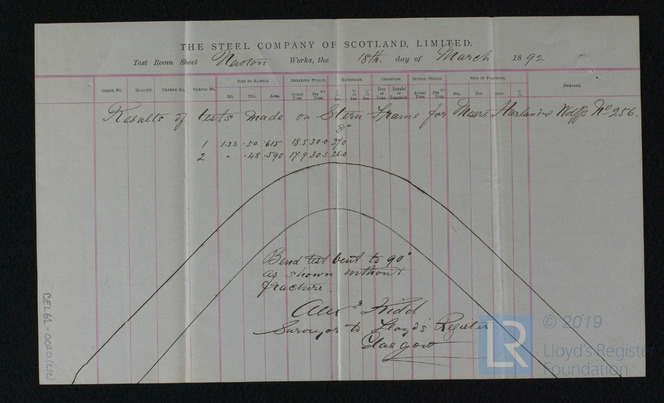 THE STEEL COMPANY OF SCOTLAND, LIMITED.
Test Room Sheet Newton Works, the 18th. day of March 1892
Order No. Quality. Charge No. Sample No. Size of Sample Breaking Strain Extension Remarks
Results of tests made on Stern Frame for Messrs Harland & Wolff's No 256.
8"
1 1.23 .50 .615 18.5 30.0 27.0
2 " .48 .590 17.9 30.3 26.0
Bend test bent to 90°
as shown without
fracture.
Kidd
Surveyor to Lloyd's Register
Glasgow
© 2019
LR Lloyd's Register
Foundation